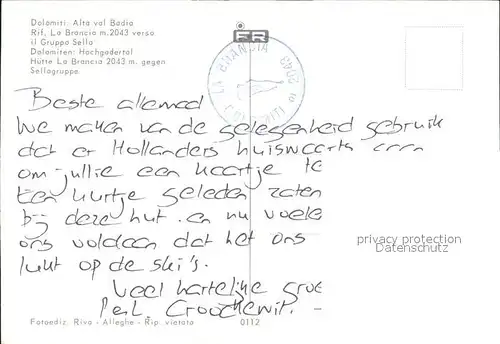 Dolomiti: Alta val Badia
Rif. La Brancia m.2043 verso
il Gruppo Sella
Dolomiten: Hochgadertal
Hütte La Brancia 2043 m. gegen
Sellagruppe
FR
LA BRANCIA 2043 m
DOLOMITI
Beste allemaal
We maken van de gelegenheid gebruik
dat er Hollanders huiswaarts gaan
om jullie een kaartje te
Een uurtje geleden zaten
bij deze hut en nu voele
ons voldaan dat het ons
lukt op de ski's.
privacy protection
Datenschutz
Veel hartelijke groe
Fotoediz. Riva - Alleghe - Rip. vietata
0112